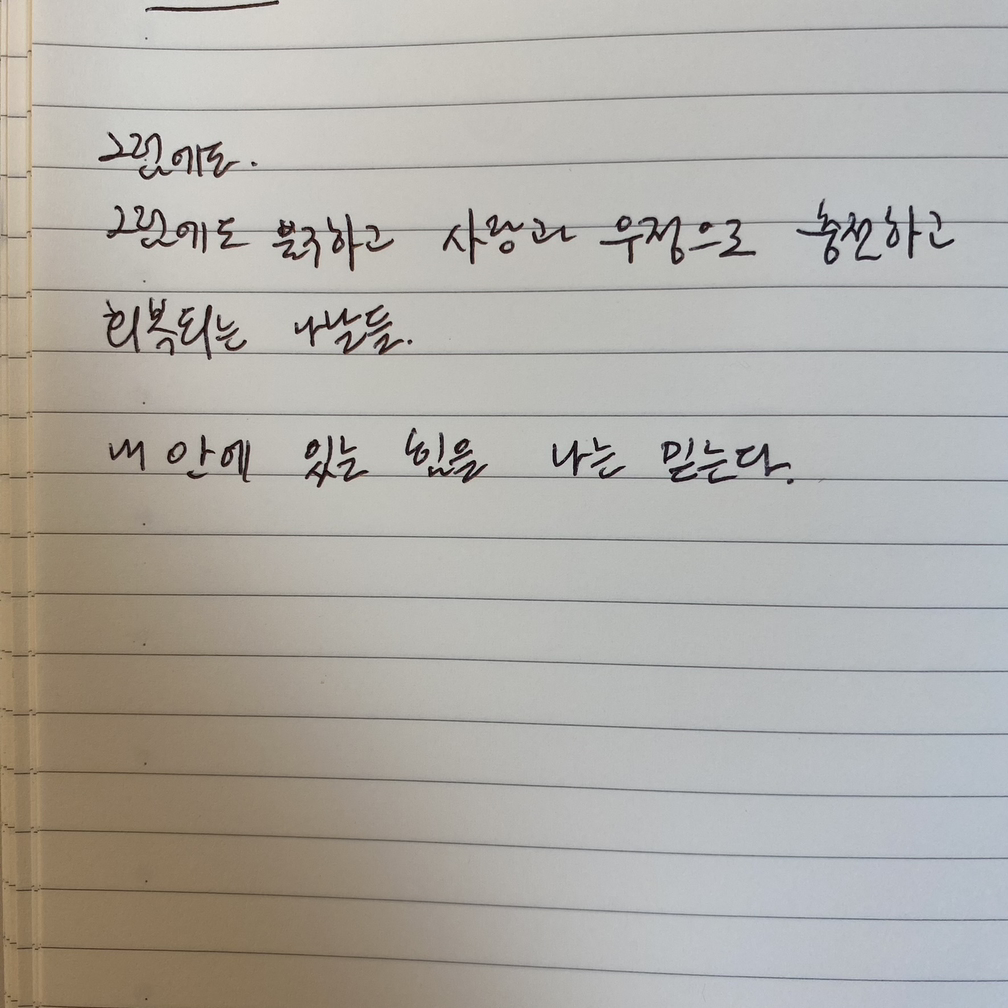 그럼에도.
그럼에도 불구하고 사랑과 우정으로 충전하고
회복되는 나날들.
내 안에 있는 힘을 나는 믿는다.